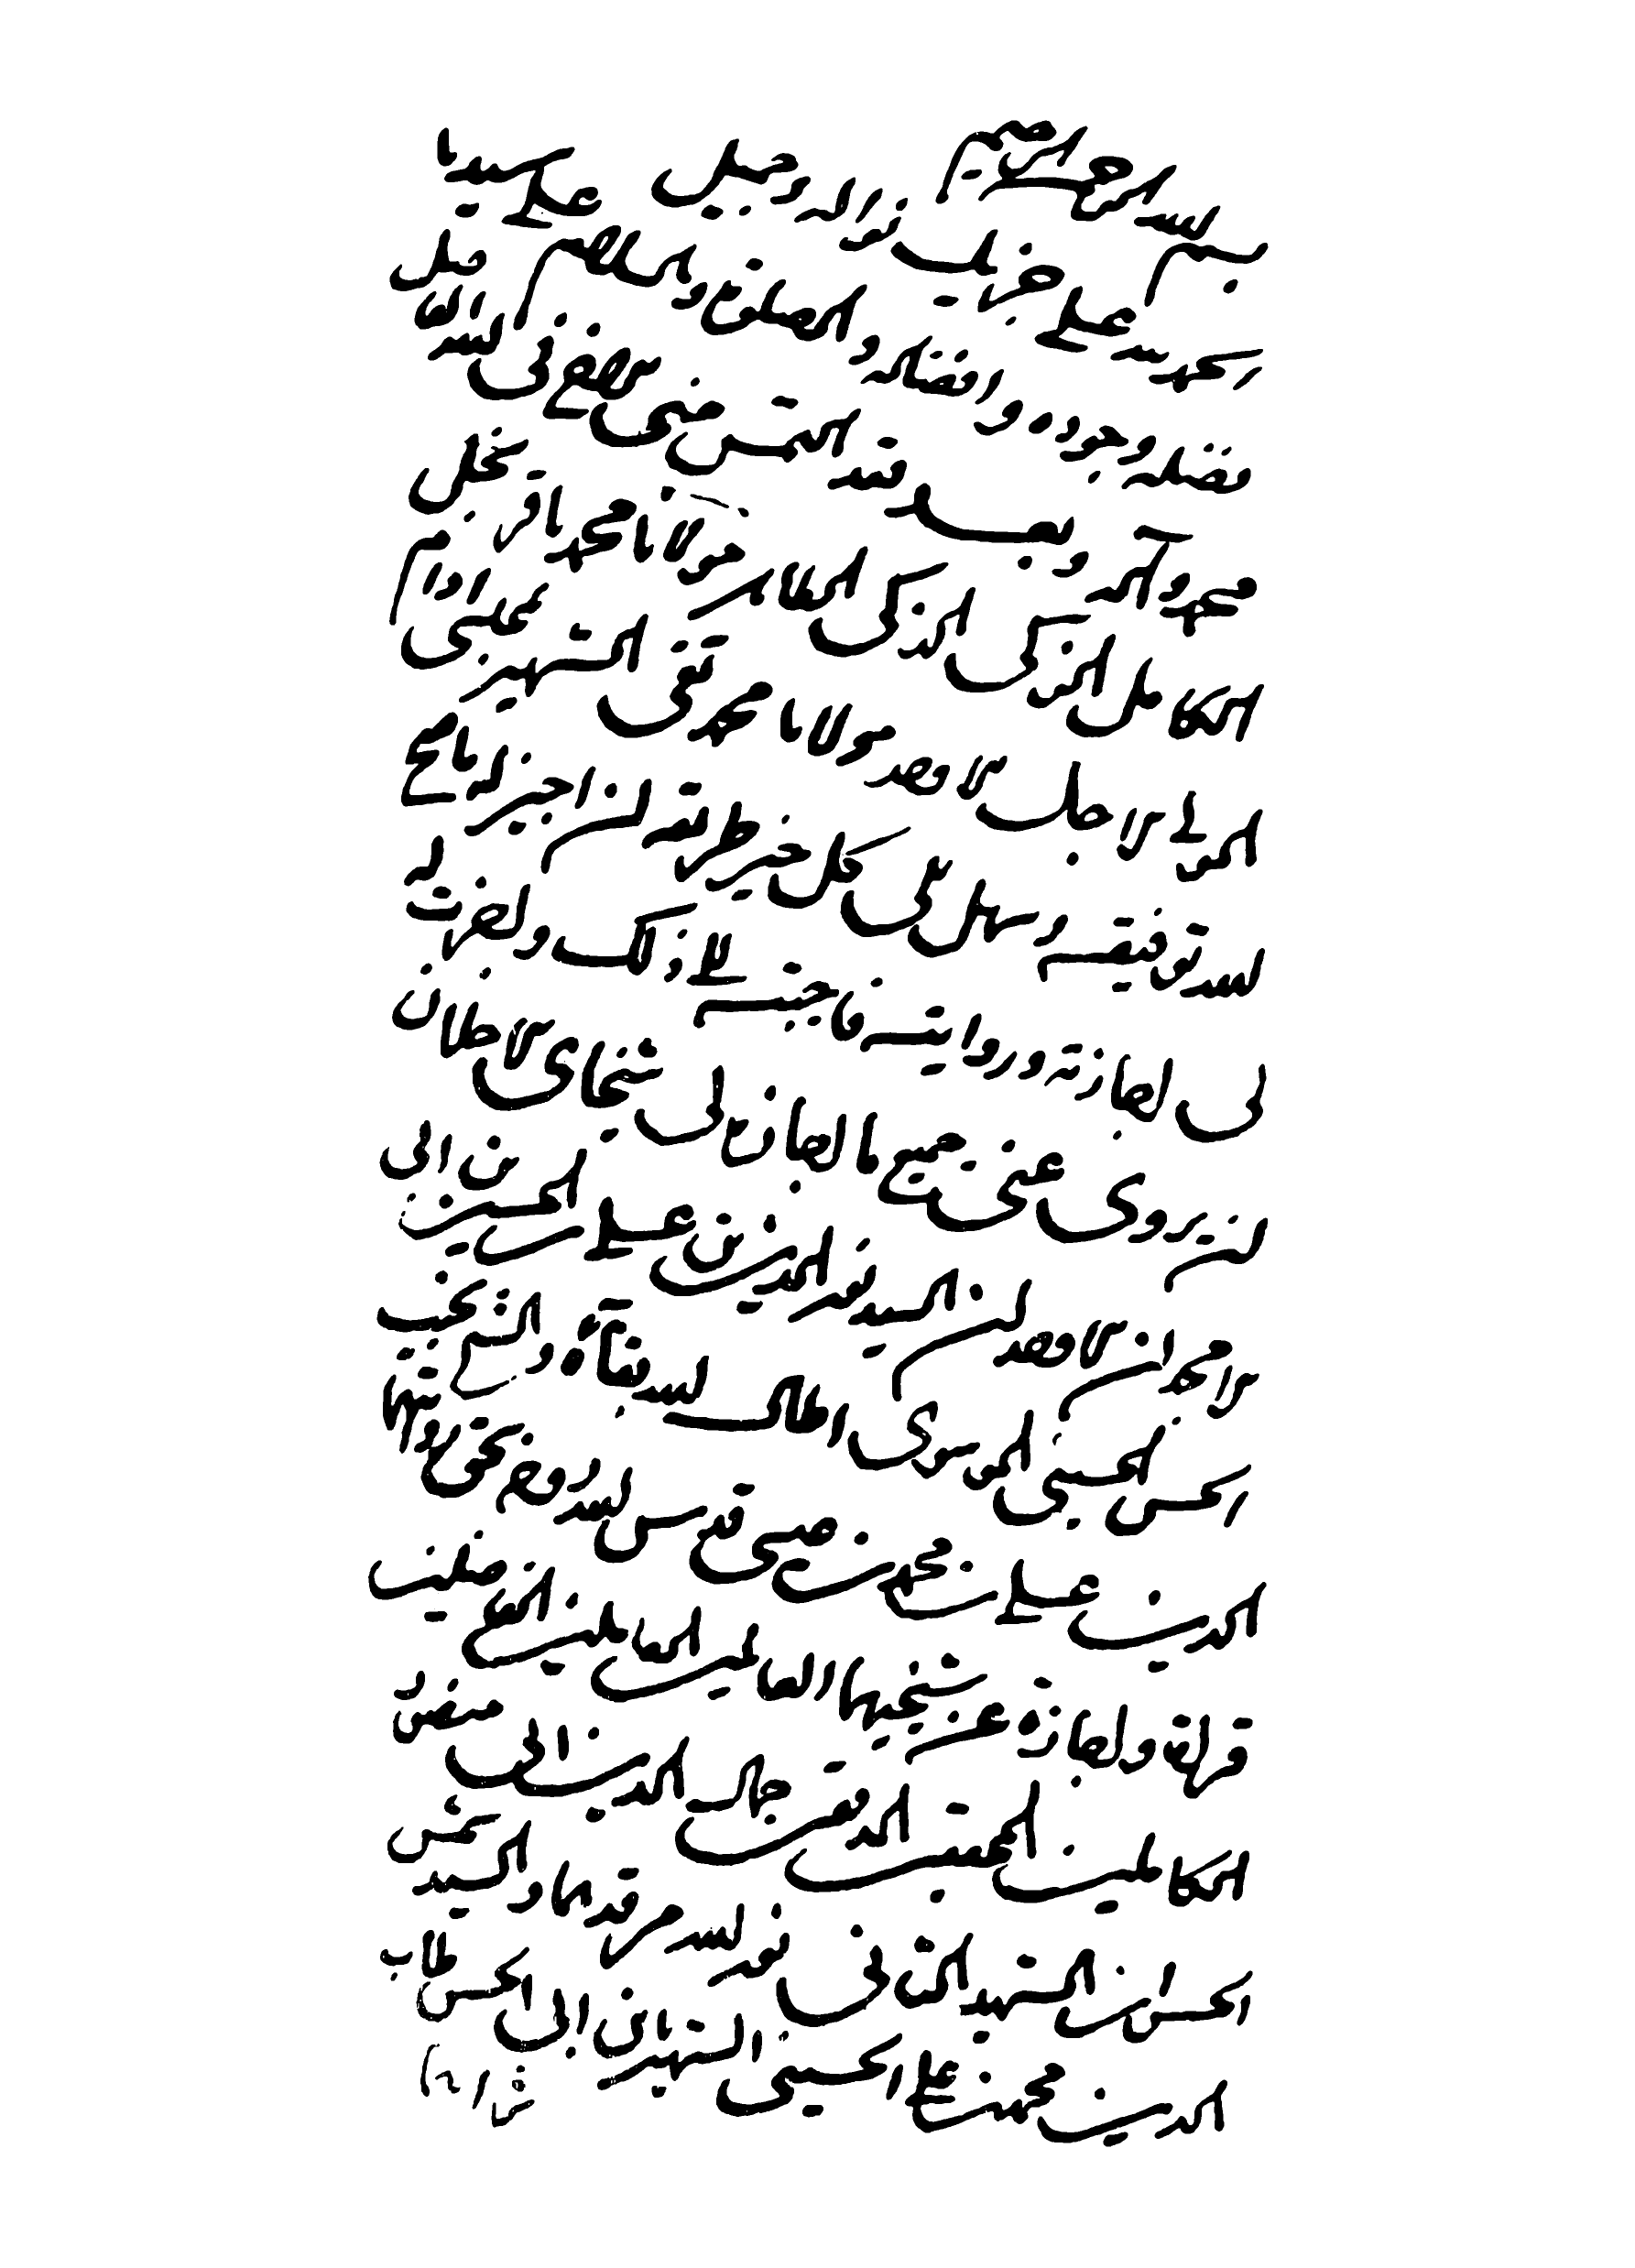 بسم الله الرحمن الرحيم
الحمد لله على جزيل نواله وجميل على سيدنا
فضله وجوده وافضاله والصلوة والسلام
محمد وآله وبعد فقد التمس مني الاخ في الله
الكامل الزكي الذكي الطاهر مولانا محمد باقر نجل
المولى الاجل الاوحد مولانا محمد تقي الشهير بمجلسي ادام
الله توفيقه وسهل الى كل خير طريقه ان اجيز له ما صح
لي اجازته وروايته فاجبته الى ذلك واجزت له
ان يروي عني جميع ما اجازه لي شيخاي الاجلان
الامجدان الاوحدان السيد نور الدين بن علي بن الحسين بن ابي
الحسن الحسيني الموسوي اطال الله بقاه والشيخ نجيب
الدين علي بن محمد بن عيسى قدس الله روحه بحق روايتهما
قراءة واجازة عن شيخيهما العالمين العاملين الفاضلين
الكاملين المحققين المدققين جمال الدين ابي منصور
الحسن ابن الشهيد الثاني نور الله مرقدهما والسيد شمس
الدين محمد بن علي الحسيني الشهير بابن ابي الحسن طاب